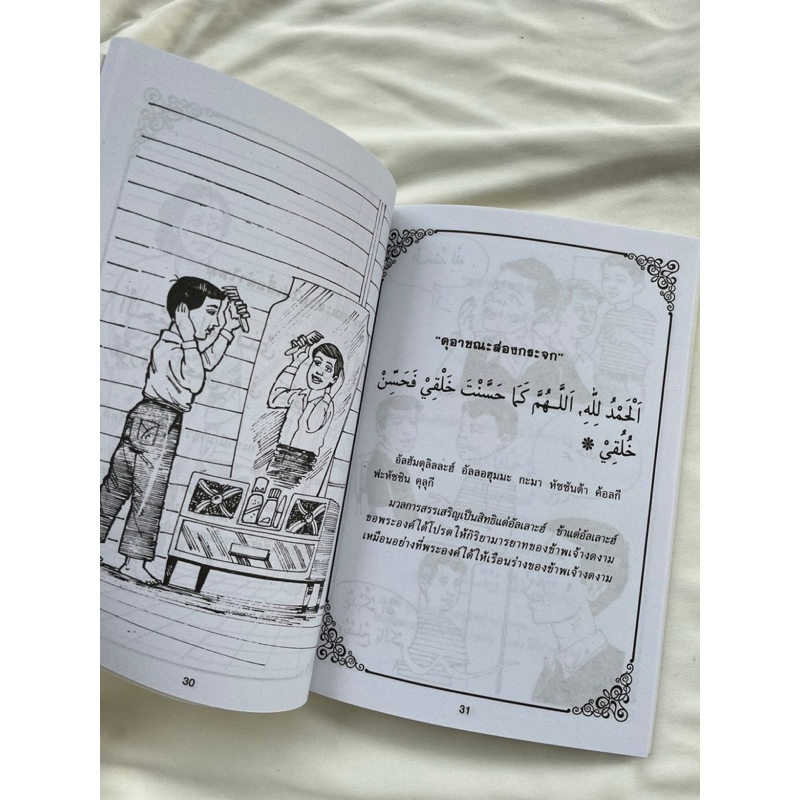 30
"ดุอาขณะส่องกระจก"
اَلْحَمْدُ لِلّٰهِ. اَللّٰهُمَّ كَمَا حَسَّنْتَ خَلْقِيْ فَحَسِّنْ
خُلُقِيْ *
อัลฮัมดุลิลละฮ์ อัลลอฮุมมะ กะมา หัซซันต้า ค้อลกี
ฟะหัซซิน คุลุกี
มวลการสรรเสริญเป็นสิทธิแด่อัลเลาะฮ์ ข้าแต่อัลเลาะฮ์
ขอพระองค์ได้โปรดให้กิริยามารยาทของข้าพเจ้างดงาม
เหมือนอย่างที่พระองค์ได้ให้เรือนร่างของข้าพเจ้างดงาม
31